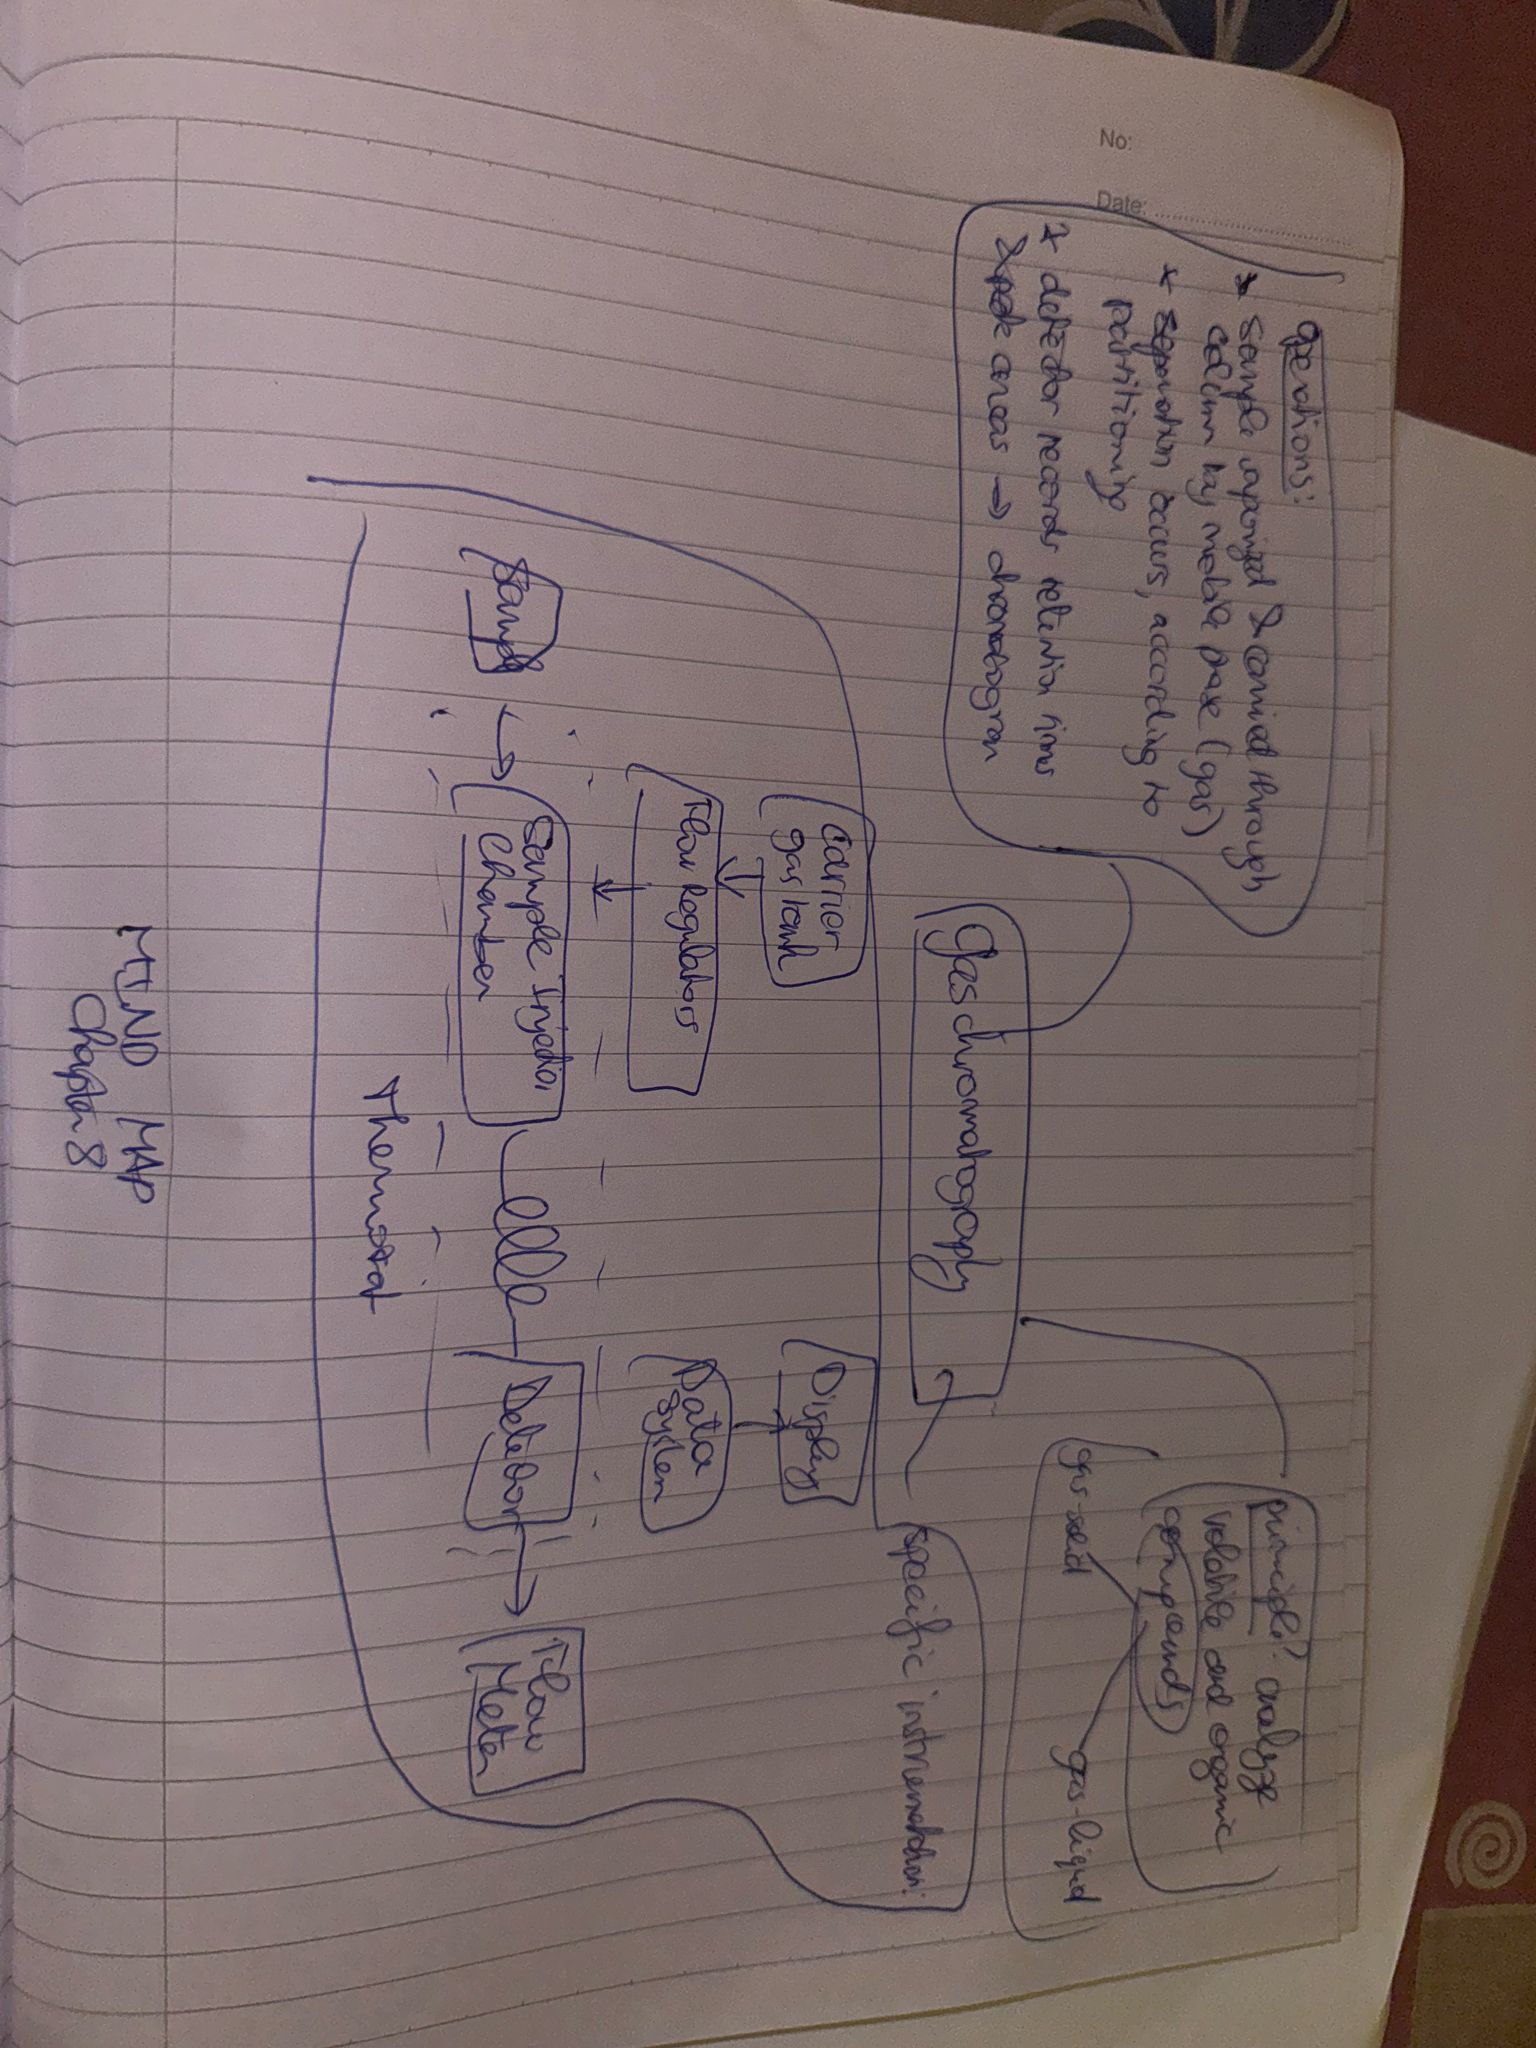 No:
Date:
operations:
* sample vaporized & carried through
column by mobile phase (gas)
* separation occurs, according to
partitioning
* detector records retention times
& peak areas → chromatogram
principle: analyze
volatile and organic
compounds
gas-solid
gas-liquid
gas chromatography
specific instrumentation:
Carrier
gas tank
Display
Flow Regulators
Data
System
Sample
Sample Injection
Chamber
Detector
Flow
Meter
Thermostat
MIND MAP
Chapter 8